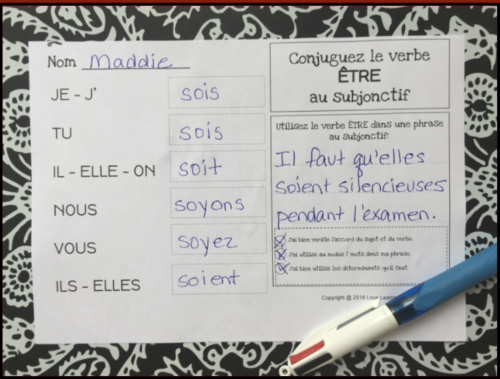 Nom Maddie
JE - J' sois
TU sois
IL - ELLE - ON soit
NOUS soyons
VOUS soyez
ILS - ELLES soient
Conjuguez le verbe
ÊTRE
au subjonctif
Utilisez le verbe ÊTRE dans une phrase
au subjonctif.
Il faut qu'elles
soient silencieuses
pendant l'examen.
J'ai bien vérifié l'accord du sujet et du verbe.
J'ai utilisé au moins 7 mots dans ma phrase.
J'ai bien utilisé les déterminants qu'il faut.
Copyright @ 2018 Love Learn